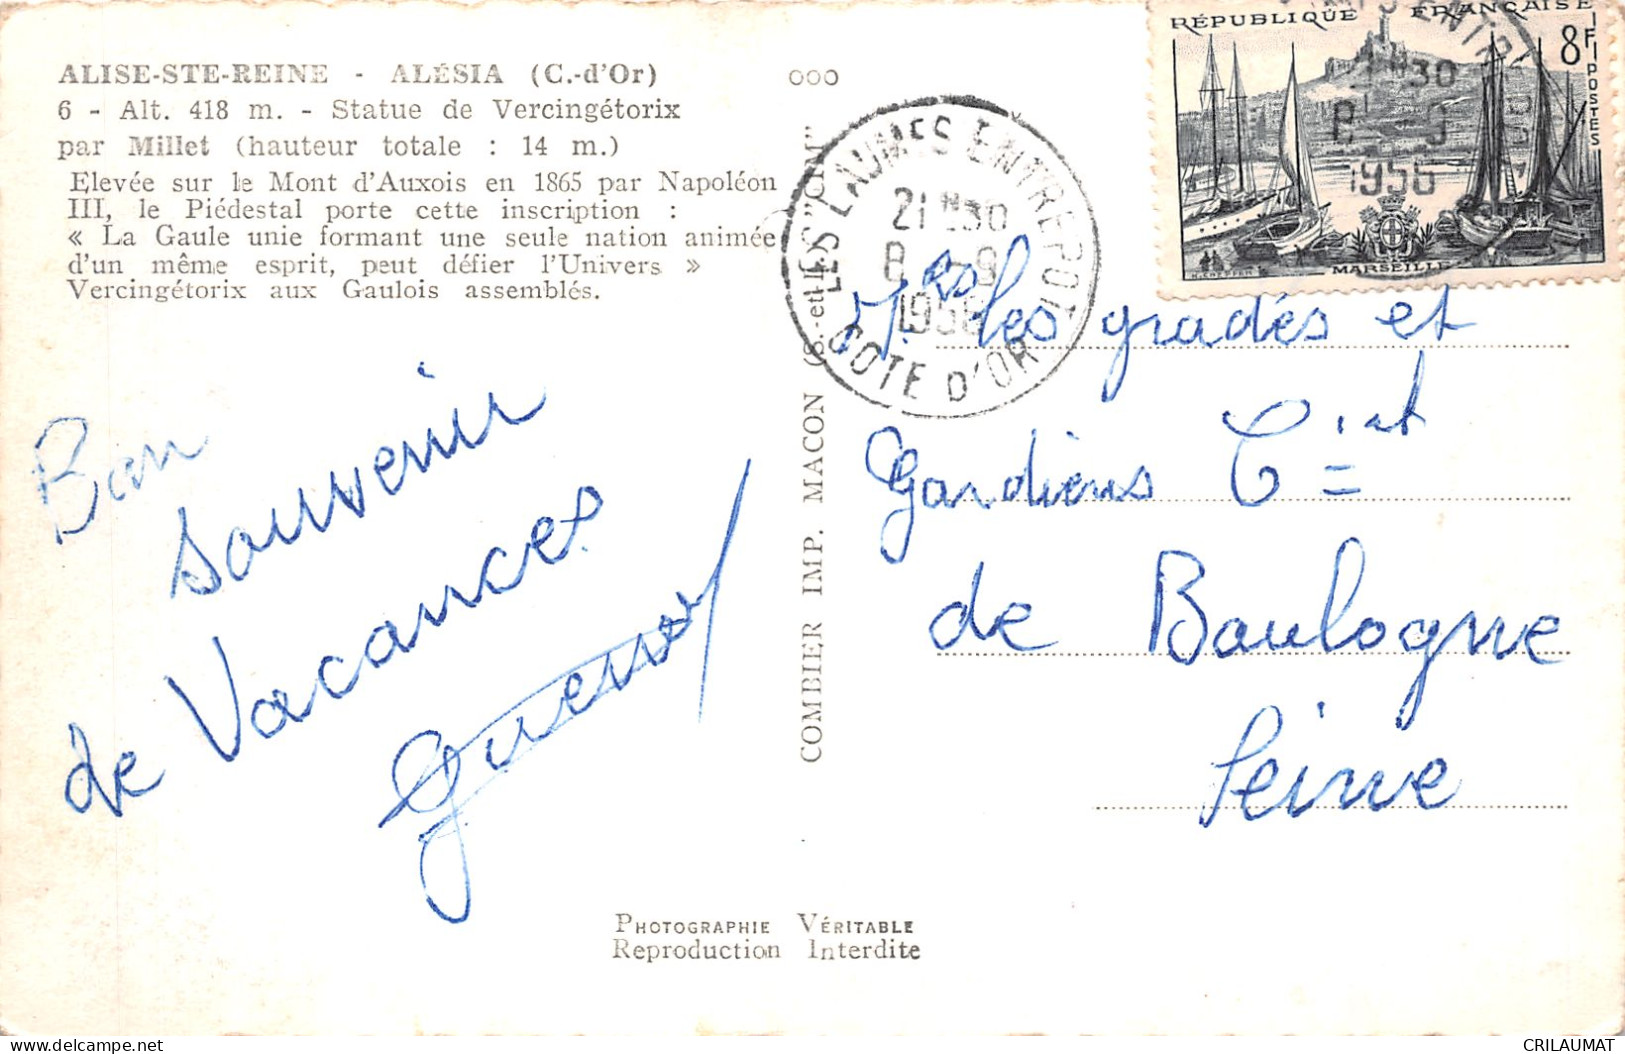 ALISE-STE-REINE - ALÉSIA (C.-d'Or)
6 - Alt. 418 m. - Statue de Vercingétorix
par Millet (hauteur totale : 14 m.)
Elevée sur le Mont d'Auxois en 1865 par Napoléon
III, le Piédestal porte cette inscription :
« La Gaule unie formant une seule nation animée
d'un même esprit, peut défier l'Univers »
Vercingétorix aux Gaulois assemblés.
Bon
souvenir
de Vacances
ooo
COMBIER IMP. MACON (S.-et-L.) "CIM"
LES LAUMES ENTREPOT
21H30
8 - 9
1956
COTE D'OR
RÉPUBLIQUE FRANÇAISE
8F
POSTES
MARSEILLE
1956
Mrs les gradés et
Gardiens Ciat
de Boulogne
Seine
PHOTOGRAPHIE VÉRITABLE
Reproduction Interdite
CRILAUMAT